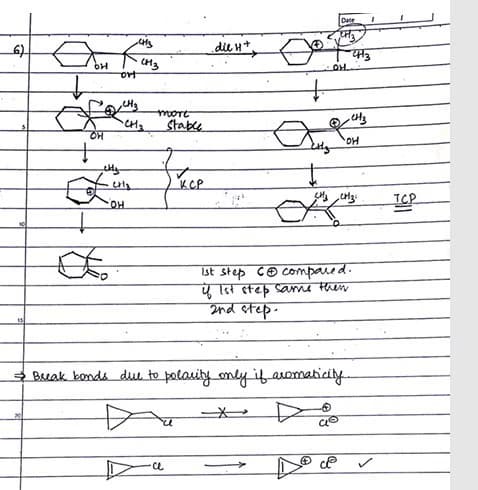 Date
6)
CH3
CH3
OH
OH
dil H+
⊕
CH3
CH3
OH
⊕
CH3
CH3
OH
more
stable
⊕
CH3
OH
CH3
CH3
CH3
⊕
OH
KCP
CH3
CH3
O
TCP
O
1st step C⊕ compared.
if 1st step same then
2nd step.
⇒ Break bonds due to polarity only if aromaticity.
Cl
⊕
Cl⊖
Cl
⊕ Cl⊖ ✓